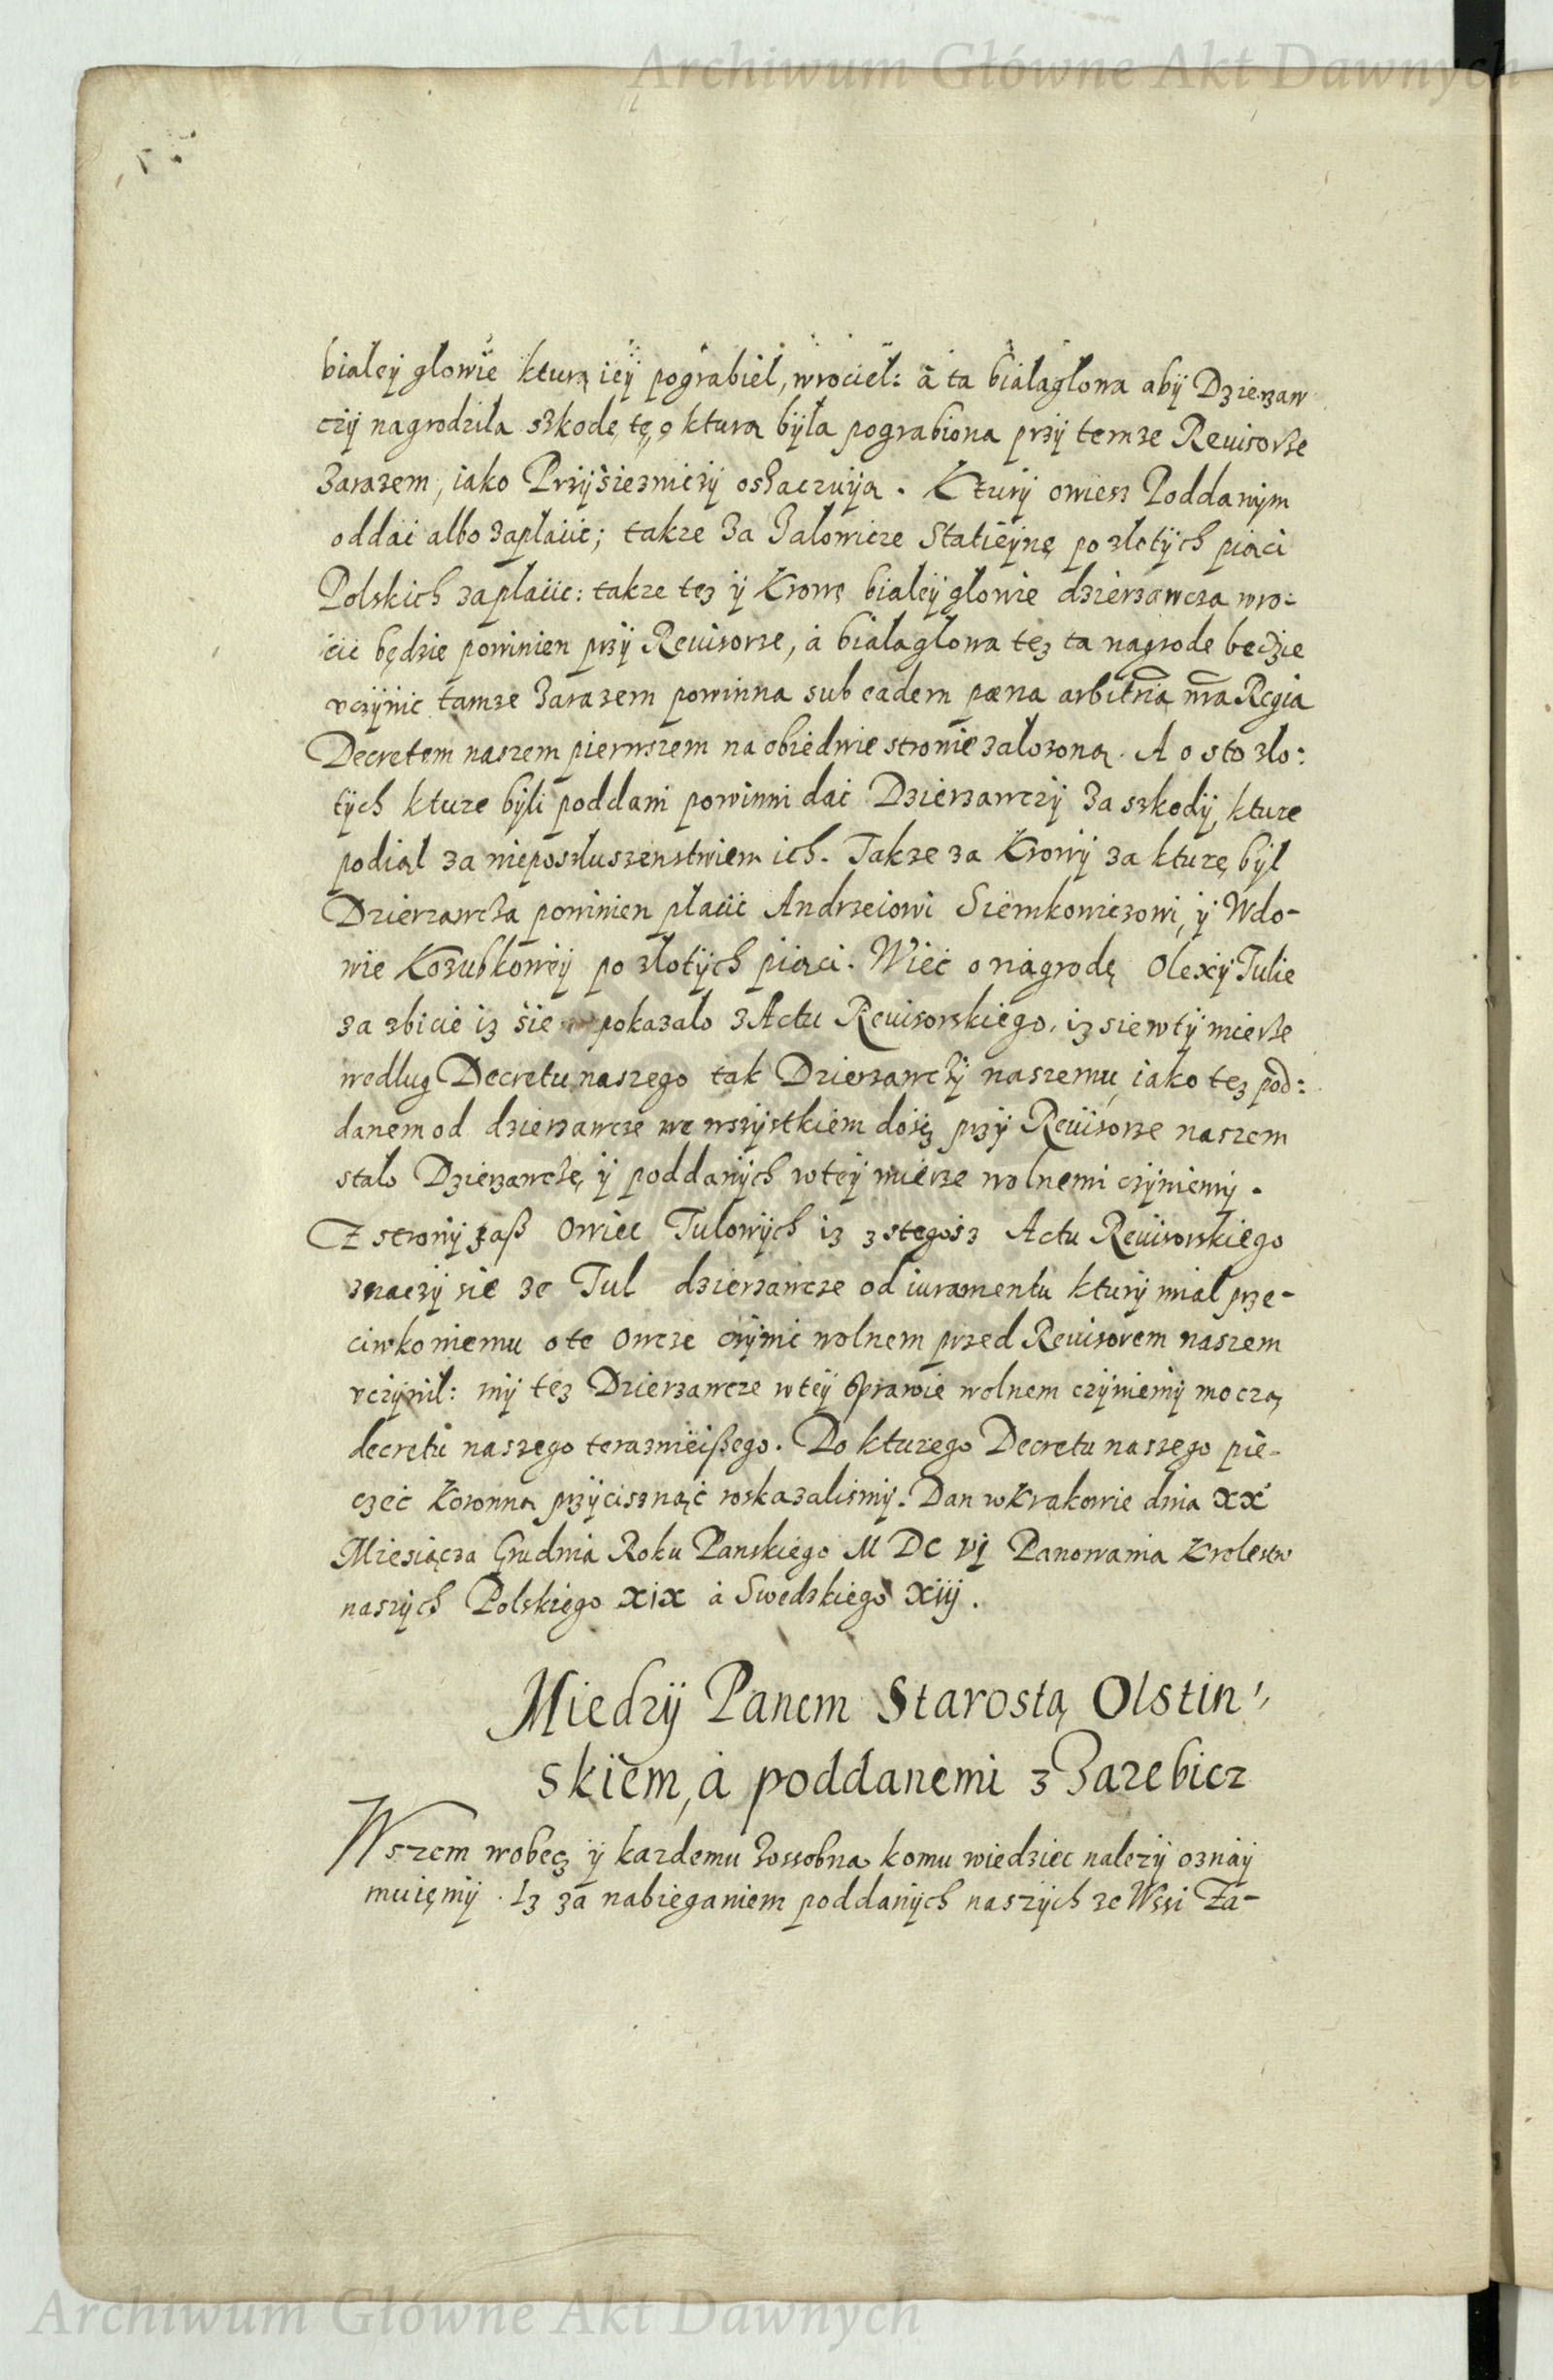 Archiwum Główne Akt Dawnych
białeÿ głowie kturą ieÿ pograbieł, wrocieł: à ta białagłowa abÿ Dzierzaw
czÿ nagrodziła szkode tę, o ktura bÿła pograbiona przÿ temze Reuisorze
zarazem, iako Przÿsiezniczÿ oszaczuÿa. Kturÿ owiess Poddanÿm
oddać albo zapłacic; takze za Jałowicze Statieÿnę po złotÿch piąci
Polskich zapłacic: takze tez ÿ Krowę białeÿ głowie dzierzawcza wro-
cic będzie powinien przÿ Reuisorze, à białagłowa tez ta nagrode bedzie
vczÿnic tamze zarazem powinna sub eadem pœna arbitria nra Regia
Decretem naszem pierwszem na obiedwie stronie załozoną. A o sto zło:
tÿch kture bÿli poddani powinni dać Dzierzawczÿ za szkodÿ, kture
podiął za nieposłuszenstwiem ich. Takze za Krowÿ za kturę bÿł
Dzierzawcza powinien płacic Andrzeiowi Siemkowiczowi, ÿ Wdo-
wie Kozubkoweÿ po złotÿch piąci. Wieć o nagrodę Olexÿ Tulie
za zbicie iz sie pokazało z Actu Reuisorskiego, iz sie w tÿ mierze
według Decretu naszego tak Dzierzawczÿ naszemu, iako tez pod:
danem od dzierzawcze we wszÿstkiem dosÿc przÿ Reuisorze naszem
stało Dzierzawczę ÿ poddanÿch w teÿ mierze wolnemi czÿniemÿ.
Z stronÿ zaß Owiec Tulowÿch iz z stegosz Actu Reuisorskiego
znaczÿ sie ze Tul dzierzawcze od iuramentu kturÿ miał prze-
ciwko niemu o te Owcze czÿnic wolnem przed Reuisorem naszem
vczÿnił: mÿ tez Dzierzawcze w teÿ sprawie wolnem czÿniemÿ moczą
decretu naszego teraznieißego. Do kturego Decretu naszego pie-
czeć Koronną przÿcisznąć roskazalismÿ. Dan w Krakowie dnia XX
Miesiącza Grudnia Roku Panskiego M DC vi Panowania Krolestw
naszÿch Polskiego XIX à Swedskiego XIII.
Miedzÿ Panem Starostą Olstin-
skiem, à poddanemi z Zarebicz
Wszem wobecz ÿ kazdemu zossobna komu wiedziec nalezÿ oznaÿ
muięmÿ. Iz za nabieganiem poddanÿch naszÿch ze Wsi Za-
Archiwum Główne Akt Dawnych